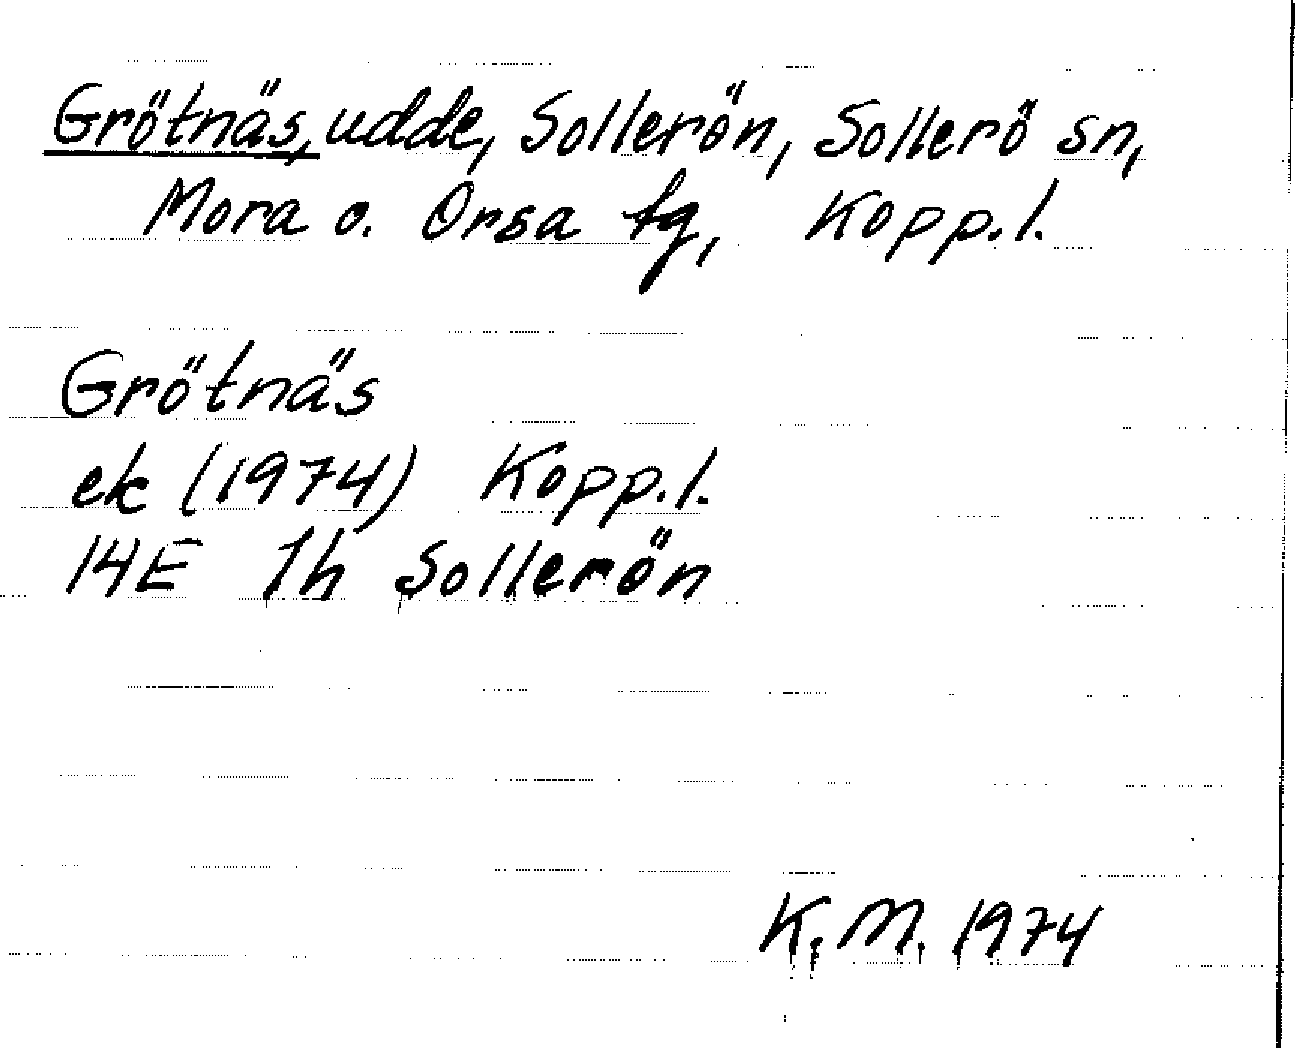 Grötnäs, udde, Sollerön, Sollerö sn,
Mora o. Orsa tg, Kopp.l.
Grötnäs
ek (1974) Kopp.l.
14E 1h Sollerön
K.M. 1974